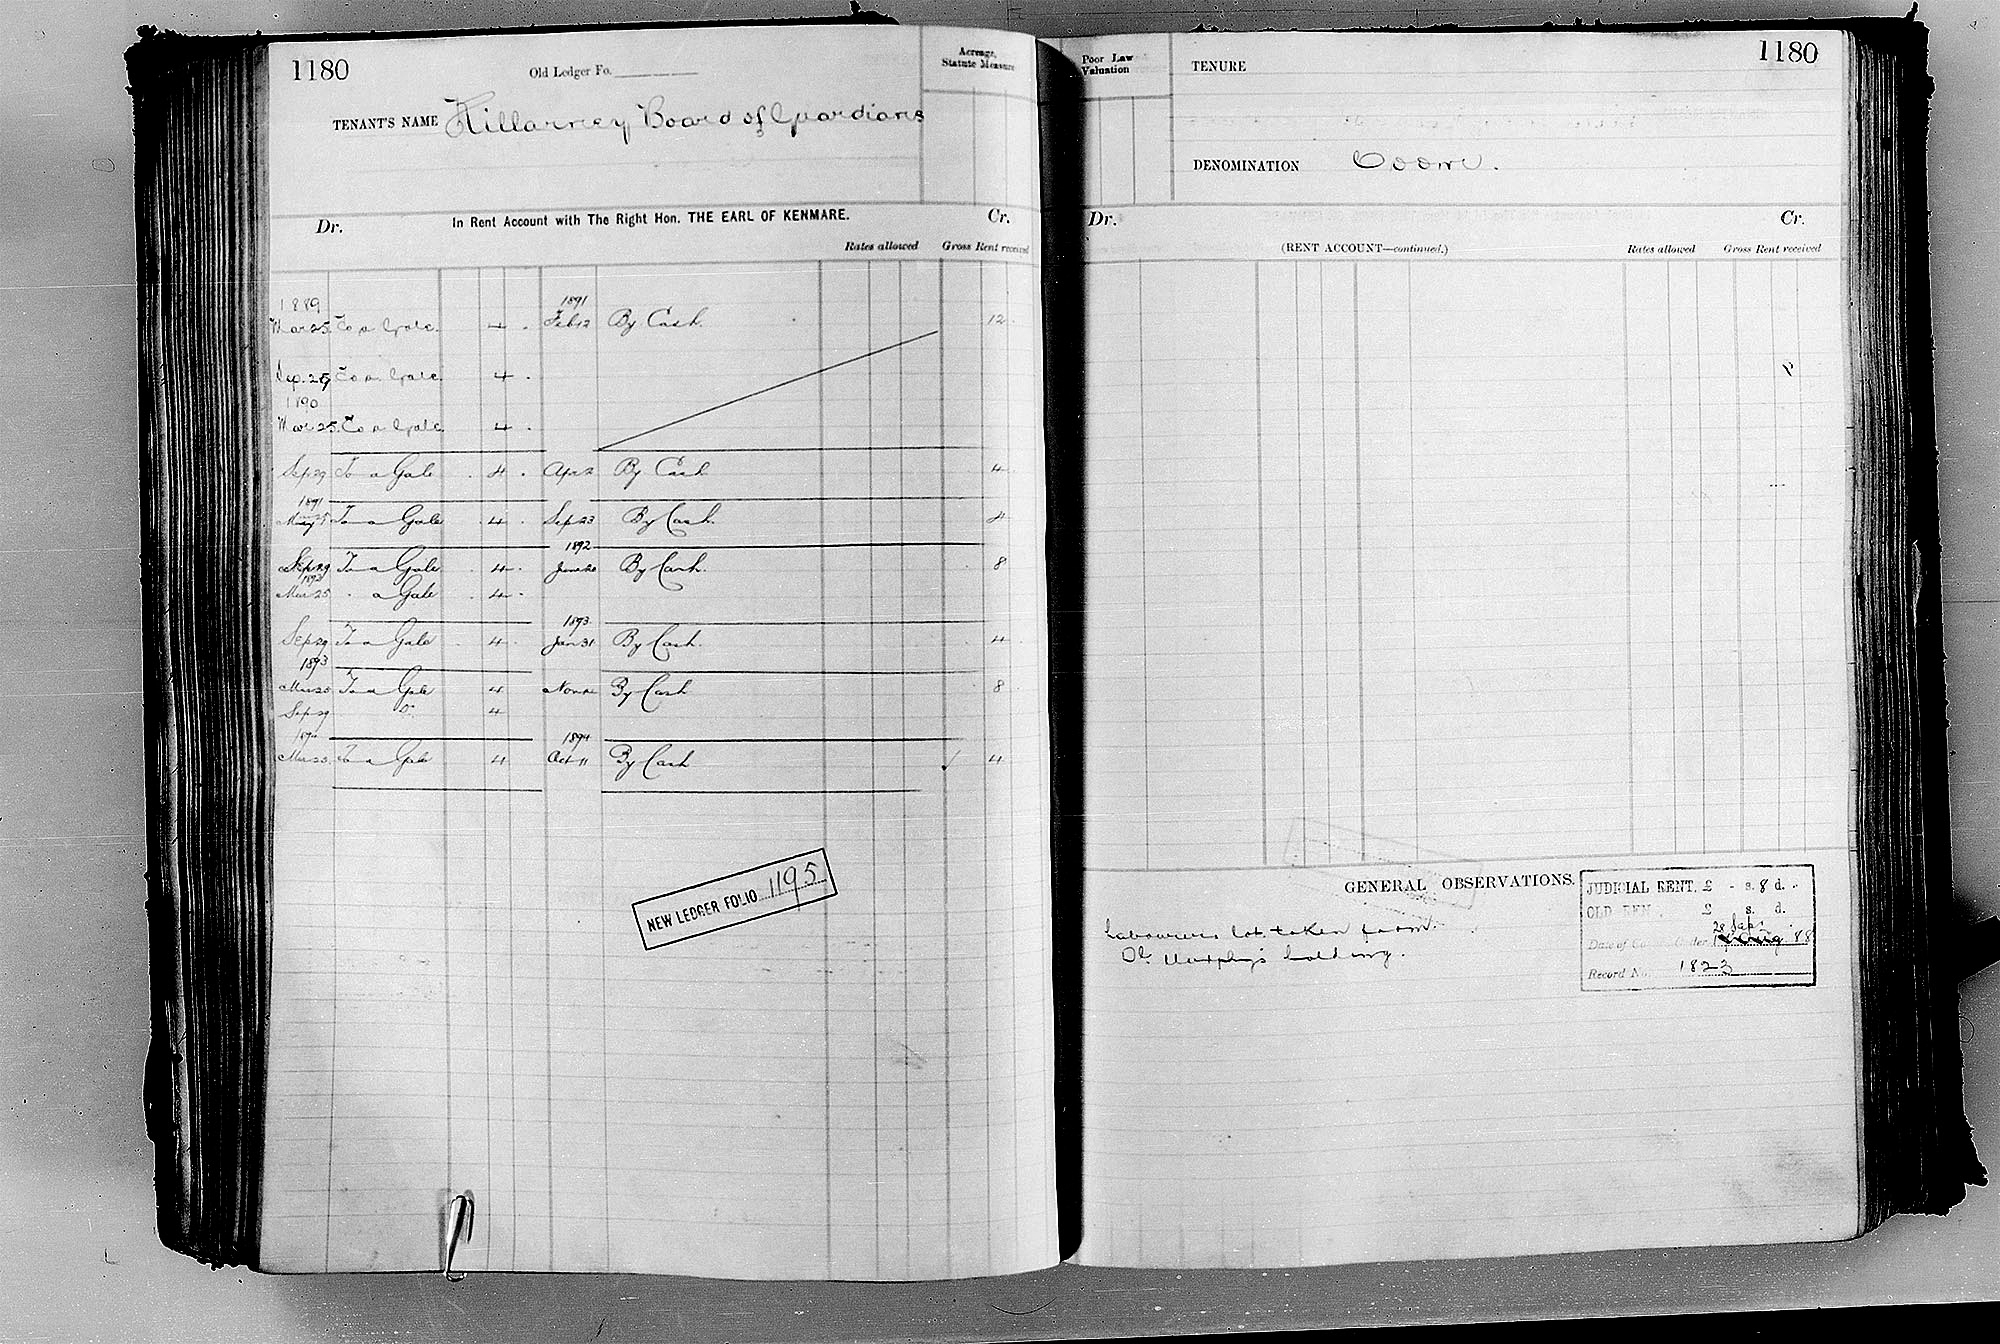 1180
Old Ledger Fo.
Acreage, Statute Measure
TENANT'S NAME Killarney Board of Guardians
Dr. In Rent Account with The Right Hon. THE EARL OF KENMARE. Cr.
Rates allowed Gross Rent received
1889 1891
Mar 25 To a Gale. 4 . Feb 12 By Cash. 12
Sep. 29 To a Gale. 4 .
1890
Mar 25 To a Gale. 4 .
Sep 29 To a Gale 4 . Apr 2 By Cash 4
1891
25 To a Gale 4 . Sep 23 By Cash. 4
1892
Sep 29 To a Gale 4 . June 20 By Cash. 8
1892
Mar 25 " a Gale 4 .
1893
Sep 29 To a Gale 4 . Jan 31 By Cash. 4
1893
Mar 25 To a Gale 4 Nov By Cash 8
Sep 29 Do 4
1894 1894
Mar 25 To a Gale 4 Oct 11 By Cash 4
NEW LEDGER FOLIO 1195
Poor Law Valuation
TENURE
1180
DENOMINATION Coom.
Dr. Cr.
(RENT ACCOUNT—continued.) Rates allowed Gross Rent received
GENERAL OBSERVATIONS.
Labourers lot taken from
Murphy's holding.
JUDICIAL RENT, £ - s. 8 d. -
OLD REN £ s. d.
28
Date of Co Order Aug '88
Record No. 1823